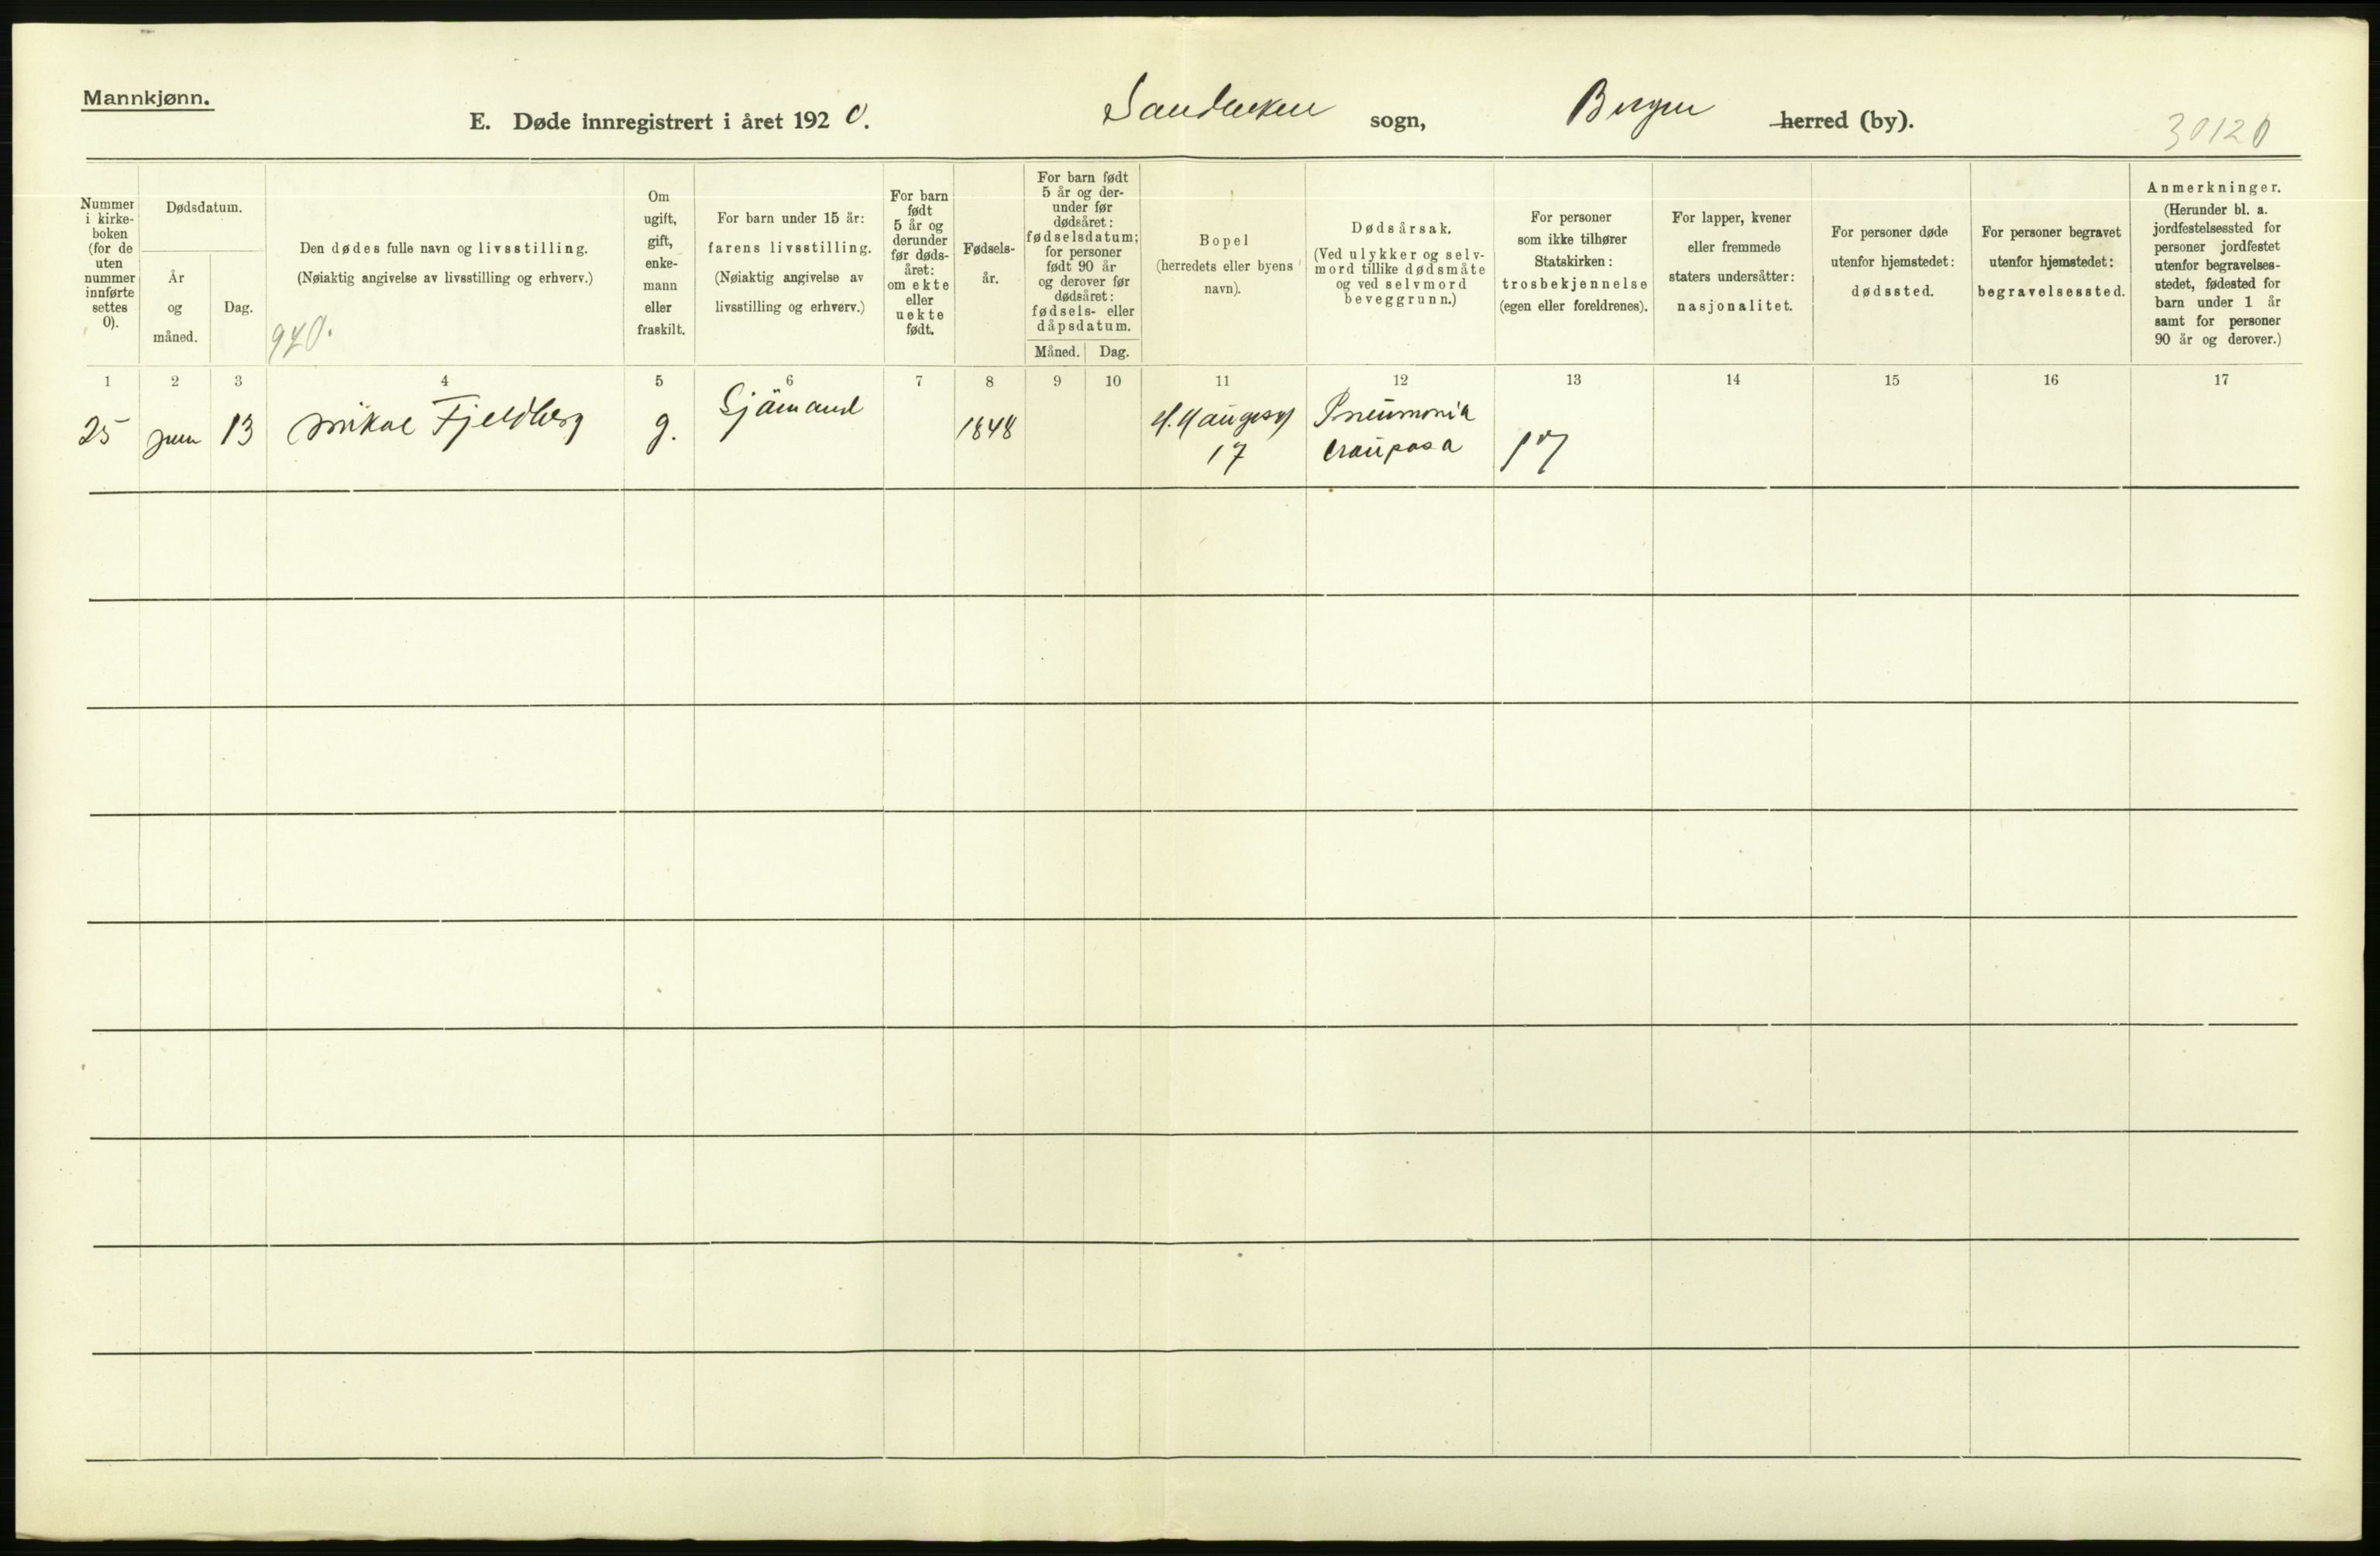 Mannkjønn.
E. Døde innregistrert i året 1920. Sandviken sogn, Bergen herred (by).
30120
Nummer i kirke-boken (for de uten nummer innførte settes 0).
Dødsdatum.
År og måned.
Dag.
Den dødes fulle navn og livsstilling.
(Nøiaktig angivelse av livsstilling og erhverv.)
940.
Om ugift, gift, enke-mann eller fraskilt.
For barn under 15 år: farens livsstilling.
(Nøiaktig angivelse av livsstilling og erhverv.)
For barn født 5 år og derunder før døds-året: om ekte eller uekte født.
Fødsels-år.
For barn født 5 år og der-under før dødsåret: fødselsdatum; for personer født 90 år og derover før dødsåret: fødsels- eller dåpsdatum.
Måned. Dag.
Bopel (herredets eller byens navn).
Dødsårsak.
(Ved ulykker og selv-mord tillike dødsmåte og ved selvmord beveggrunn.)
For personer som ikke tilhører Statskirken: trosbekjennelse (egen eller foreldrenes).
For lapper, kvener eller fremmede staters undersåtter: nasjonalitet.
For personer døde utenfor hjemstedet: dødssted.
For personer begravet utenfor hjemstedet: begravelsessted.
Anmerkninger.
(Herunder bl. a. jordfestelsessted for personer jordfestet utenfor begravelses-stedet, fødested for barn under 1 år samt for personer 90 år og derover.)
1 2 3 4 5 6 7 8 9 10 11 12 13 14 15 16 17
25 juni 13 Mikal Fjeldberg g. Sjömand 1848 Pneumonia
17 crouposa